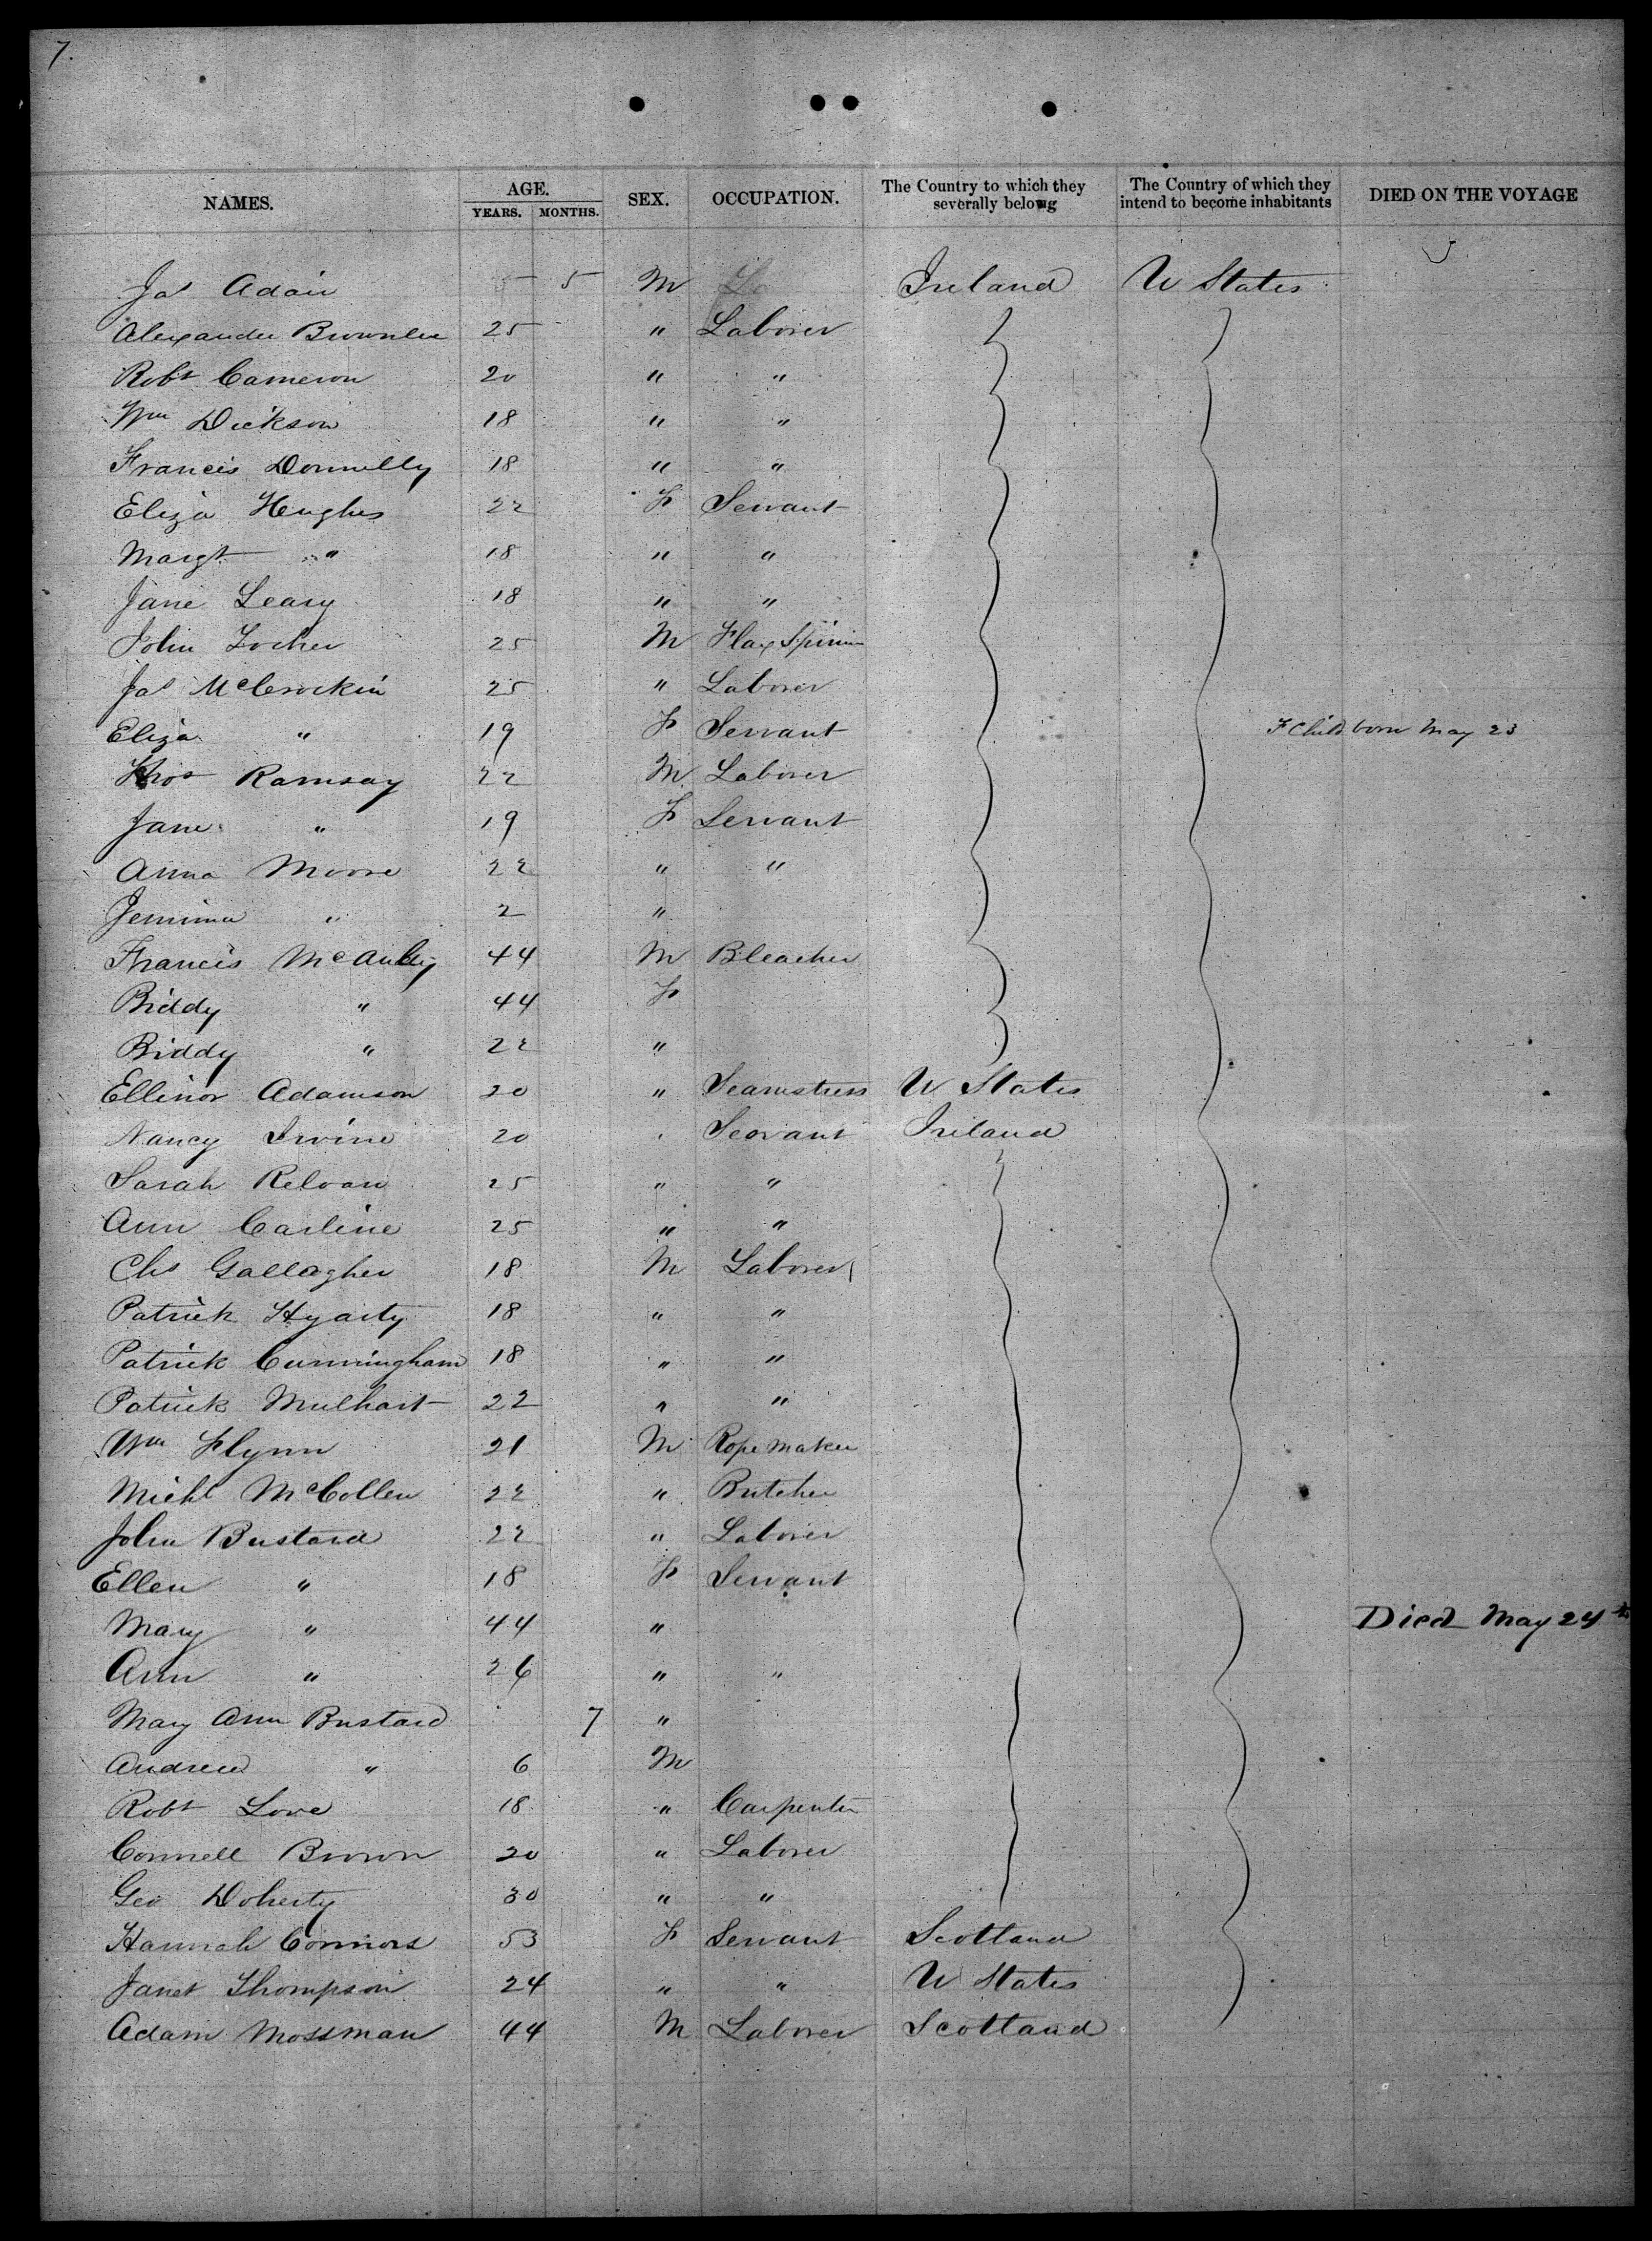 7.
NAMES. AGE. YEARS. MONTHS. SEX. OCCUPATION. The Country to which they severally belong The Country of which they intend to become inhabitants DIED ON THE VOYAGE
Jas Adair 5 M Ireland U States
Alexander Brownlee 25 " Laborer
Robt Cameron 20 " "
Wm Dickson 18 " "
Francis Donnelly 18 " "
Eliza Hughes 22 F Servant
Margt " 18 " "
Jane Leary 18 " "
John Locher 25 M Flax Spinner
Jas McCrockin 25 " Laborer
Eliza " 19 F Servant F Child born May 23
Thos Ramsay 22 M Laborer
Jane " 19 F Servant
Anna Moore 22 " "
Jemima " 2 "
Francis McAuley 44 M Bleacher
Biddy " 44 F
Biddy " 22 "
Ellinor Adamson 20 " Seamstress U States
Nancy Irvine 20 Servant Ireland
Sarah Reloan 25 " "
Ann Carline 25 " "
Chs Gallagher 18 M Laborer
Patrick Hyarty 18 " "
Patrick Cunningham 18 " "
Patrick Mulhart 22 " "
Wm Flynn 21 M Rope maker
Michl McCollen 22 " Butcher
John Bustard 22 " Laborer
Ellen " 18 F Servant
Mary " 44 " Died May 24th
Ann " 26 " "
Mary Ann Bustard 7 "
Andrew " 6 M
Robt Love 18 " Carpenter
Connell Brown 20 " Laborer
Geo Doherty 30 " "
Hannah Connors 53 F Servant Scotland
Janet Thompson 24 " " U States
Adam Mossman 44 M Laborer Scotland